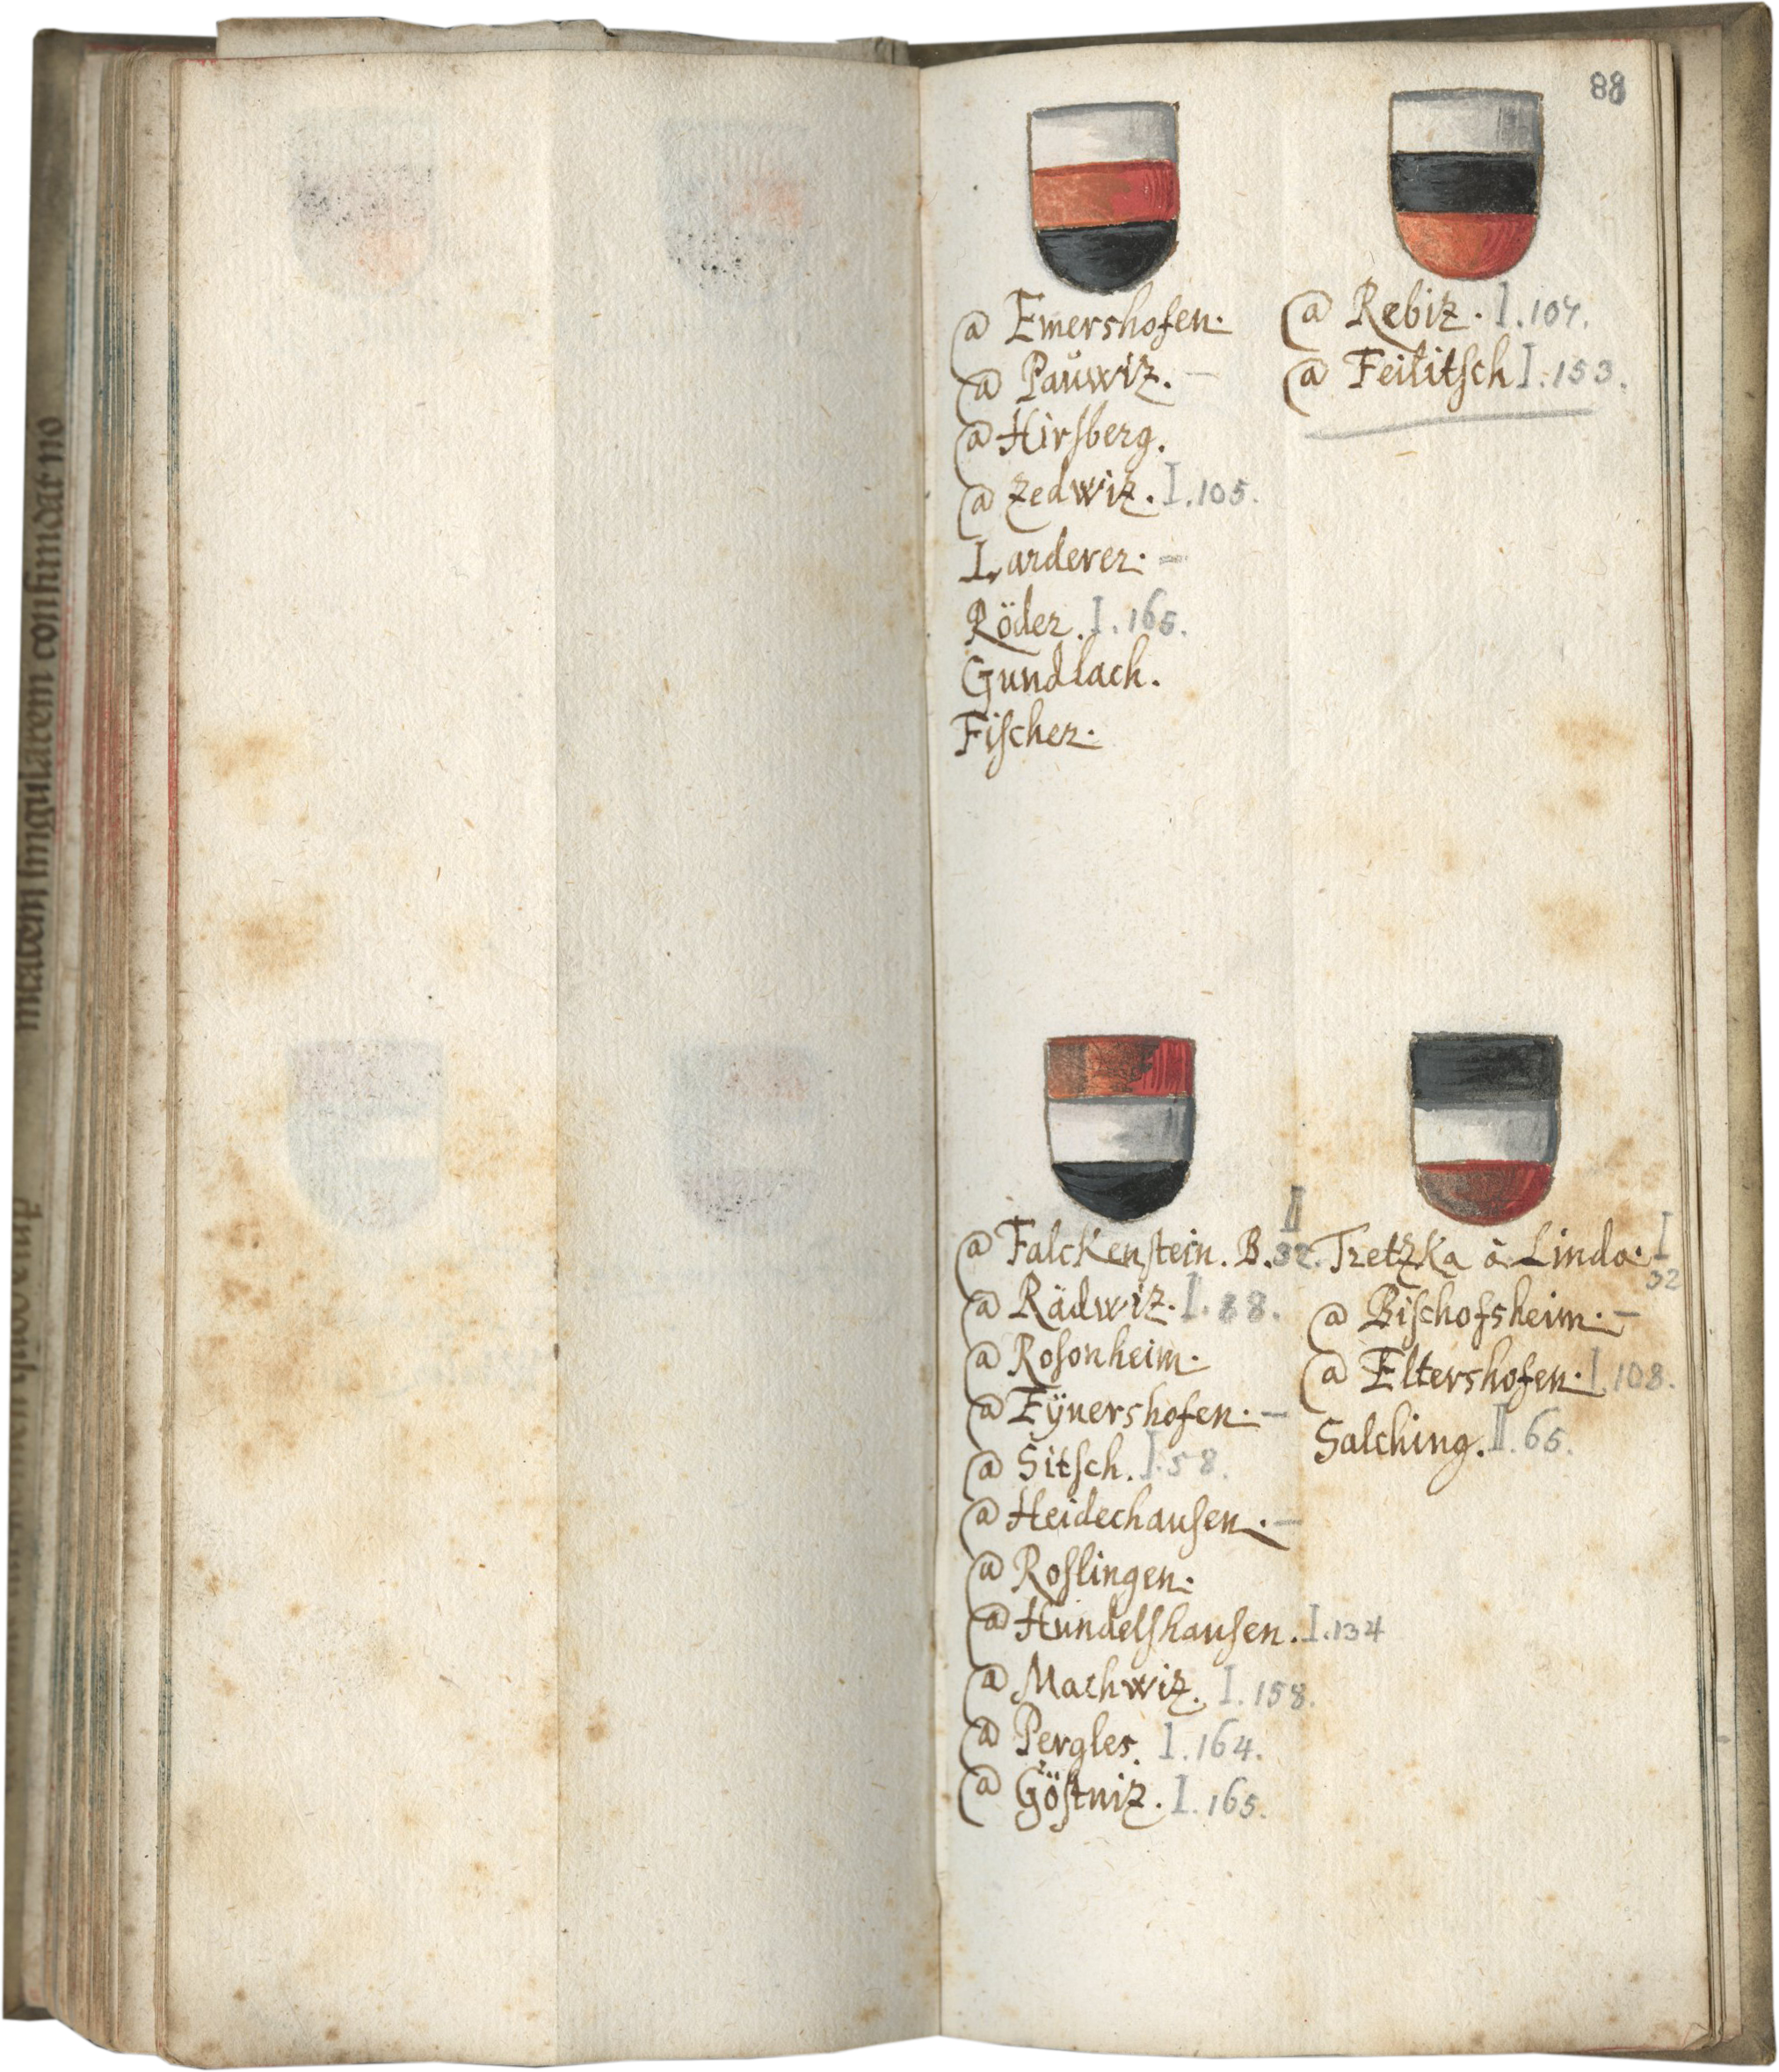 88
@ Emershofen.
@ Pauwiz. –
@ Hirſberg.
@ Zedwiz. I. 105.
Larderer. –
Röder. I. 165.
Gundlach.
Fiſcher.
@ Rebiz. I. 107.
@ Feilitſch I. 153.
@ Falckenſtein. B. II 32.
@ Rädwiz. I. 88.
@ Roſonheim.
@ Eÿnershofen. –
@ Sitſch. I. 58.
@ Heidechauſen. –
@ Roſlingen.
@ Hundelſhauſen. I. 134
@ Machwiz. I. 158.
@ Pergler. I. 164.
@ Göſtniz. I. 165.
Tretzka à Linda. I 32
@ Biſchofsheim. –
@ Eltershofen. I 108.
Salching. II. 65.